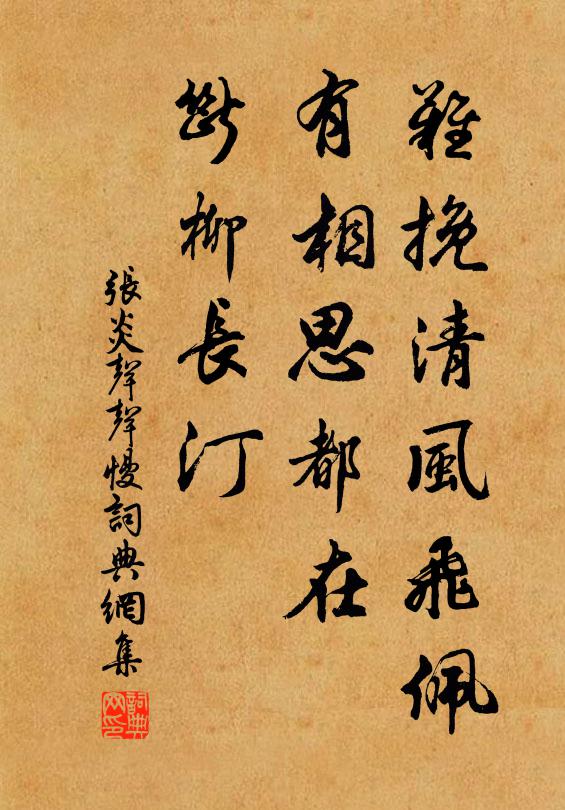 難挽清風飛佩
有相思都在
斷柳長汀
張炎聲聲慢詞典網集
詞典网印